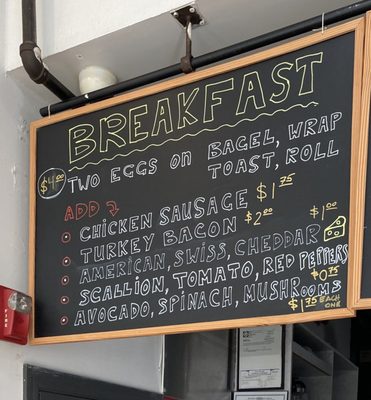 BREAKFAST
$4.00 TWO EGGS on BAGEL, WRAP
TOAST, ROLL
ADD
CHICKEN SAUSAGE $1.75
TURKEY BACON $2.00
AMERICAN, SWISS, CHEDDAR $1.00
SCALLION, TOMATO, RED PEPPERS $0.75
AVOCADO, SPINACH, MUSHROOMS $1.75 EACH ONE
FIRE